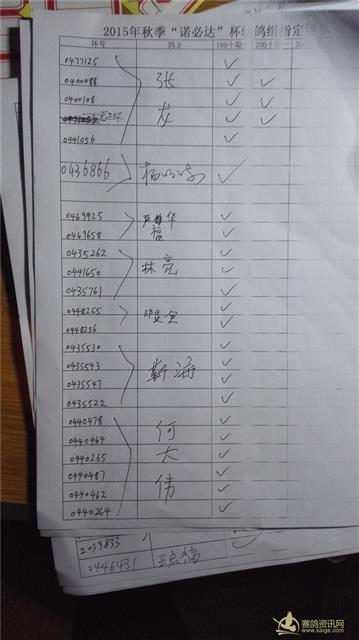 2015年秋季“诺必达”杯 鸽组指定
环号 鸽主 100十取 200十
0477125 ✓
0400088 张 ✓ ✓
0400108 ✓ ✓
龙 ✓ ✓
0441056 ✓
0436866 ✓
0469925 华 ✓
0469658 ✓
0435262 ✓
0441650 林亮 ✓
0435761 ✓
0448255 ✓
0448256 ✓
0435530 ✓
0435543 靳海 ✓
0435547 ✓
0435522 ✓
0440478 何 ✓
0440464 ✓
0440265 大 ✓
0440487 ✓
0440462 伟 ✓
0440264 ✓
2039833
0446431
赛鸽资讯网
www.saige.com